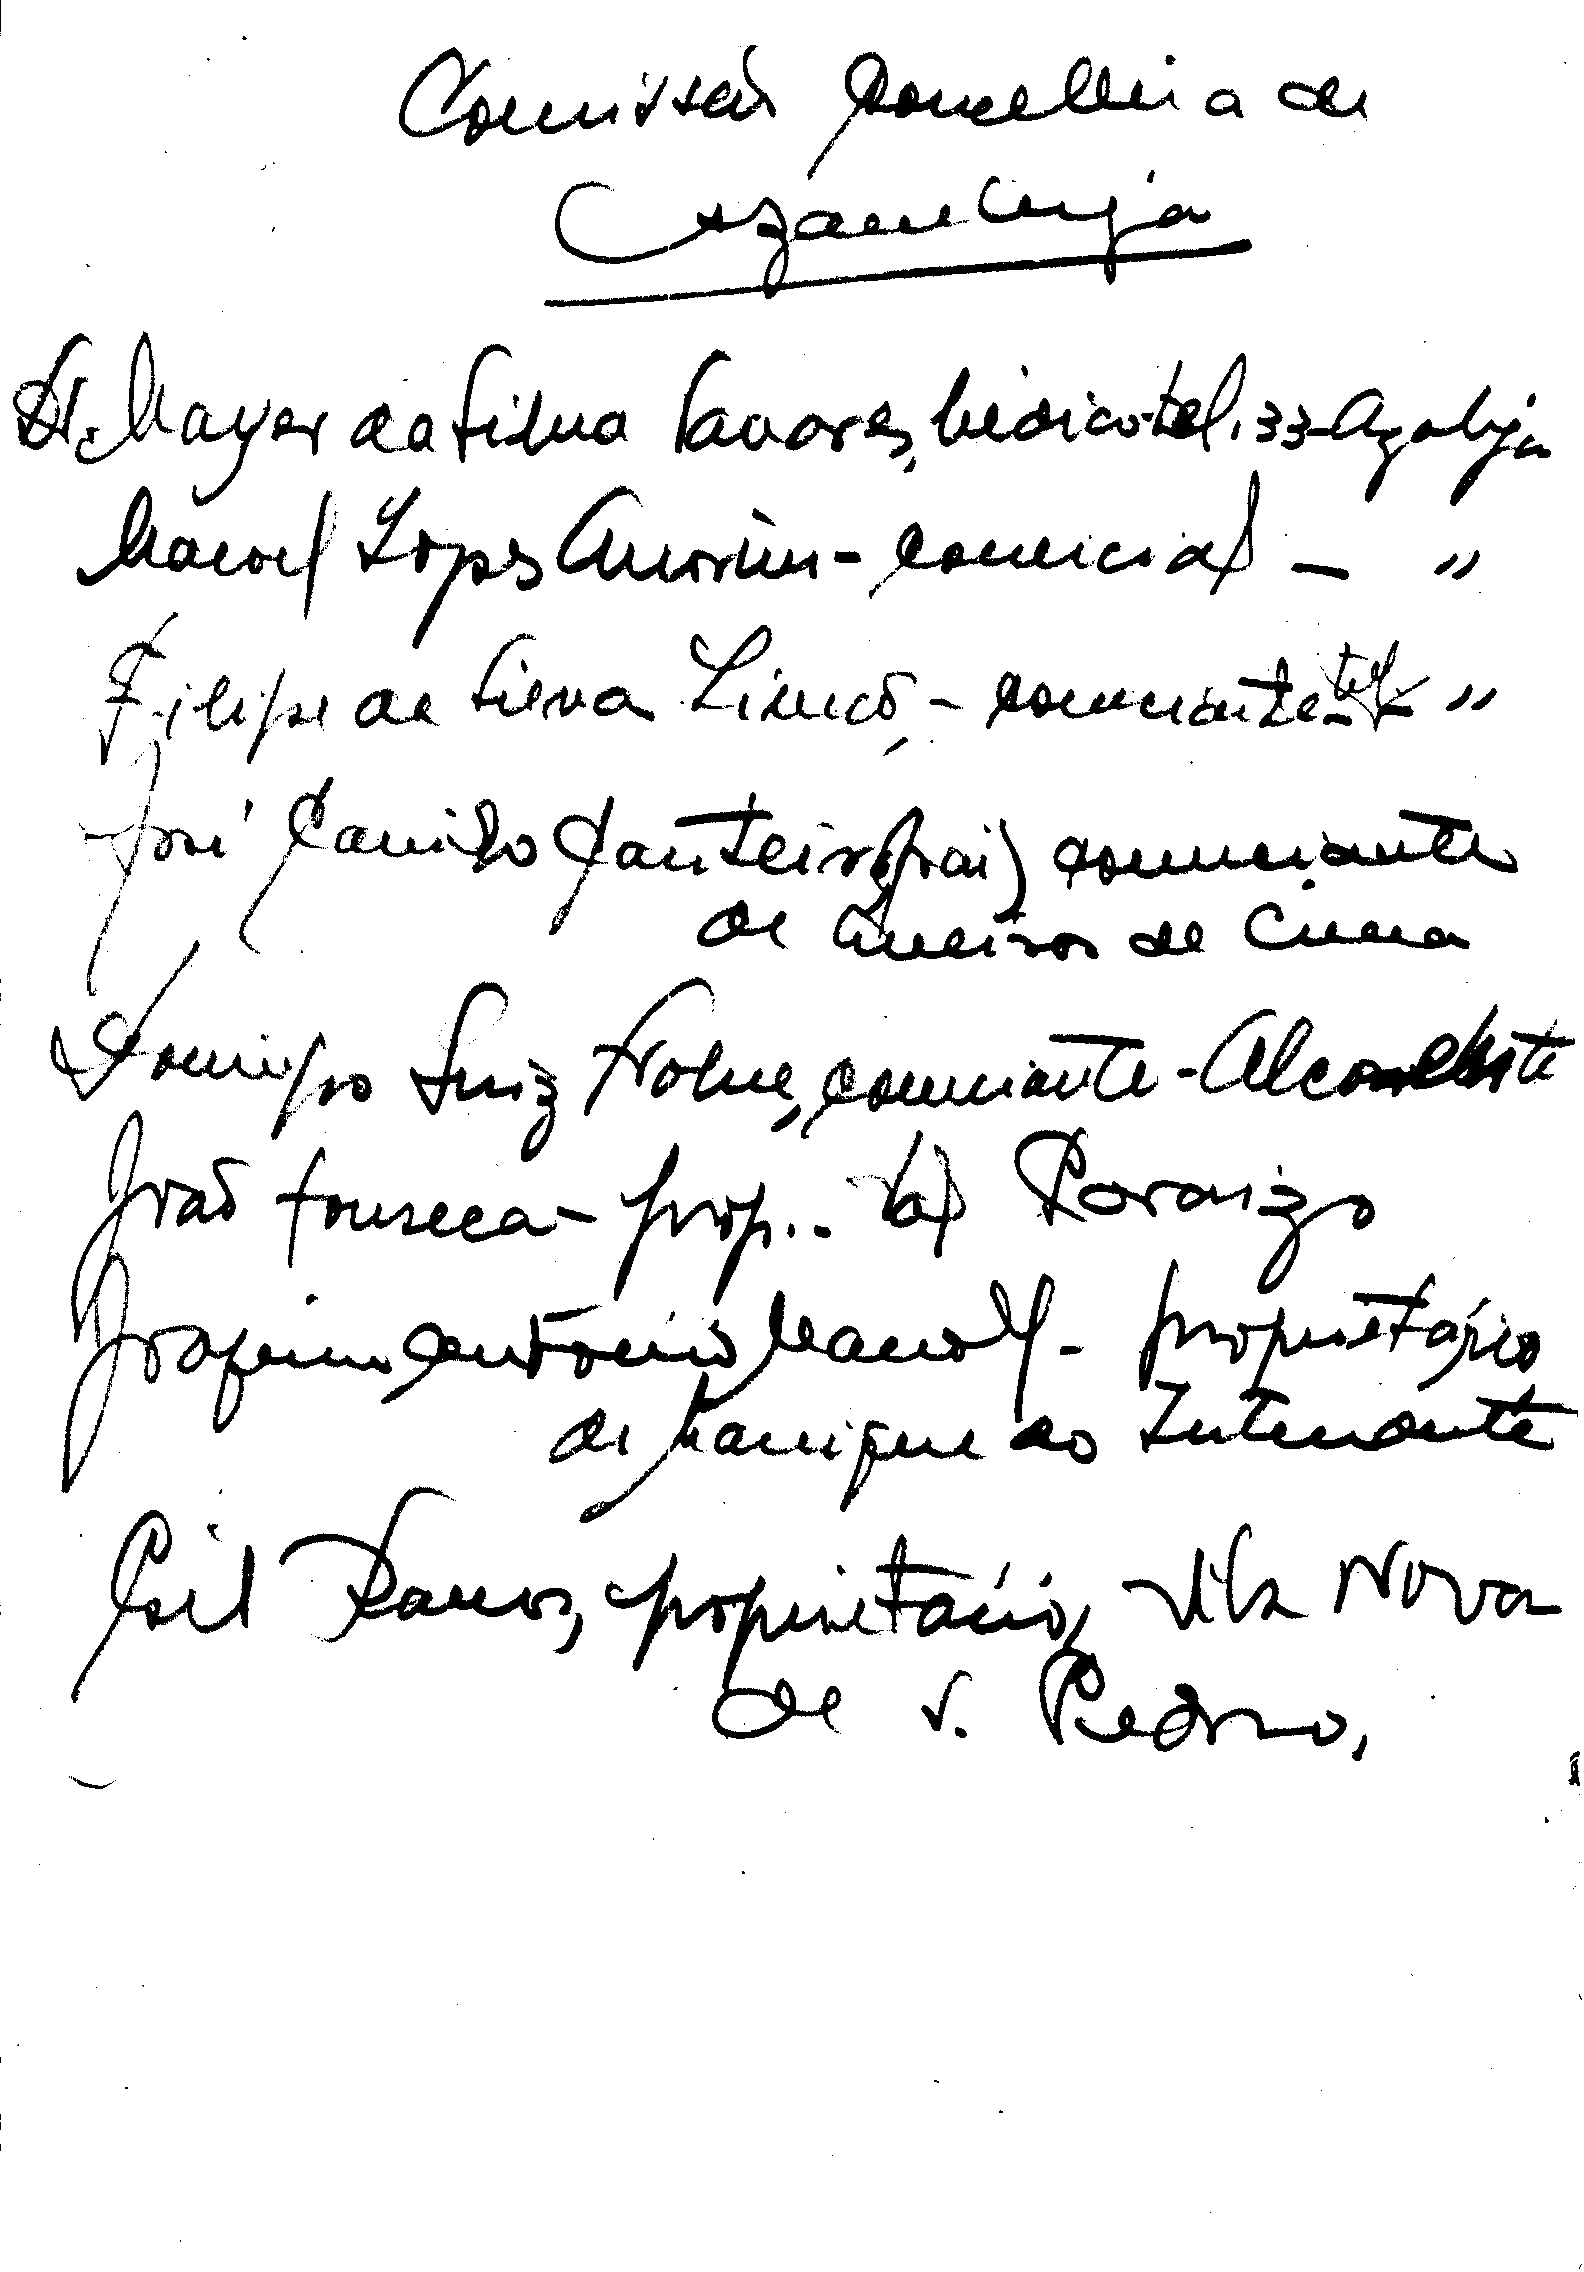 Comissão Concelhia de
Azambuja
Dr. Mayer da Silva Tavares, Médico-tel. 33-Azambuja
Manoel Lopes Amorim - comercial - "
Filipe da Silva - comerciante - tel - "
José Camilo (pai) comerciante
de Aveiras de Cima
Domingos Luiz Nobre, comerciante - Alcoentre
João Fonseca - prop. - Val Paraizo
Joaquim António Manoel - proprietário
de Manique do Intendente
Gil Ramos, proprietário, Vila Nova
de S. Pedro,